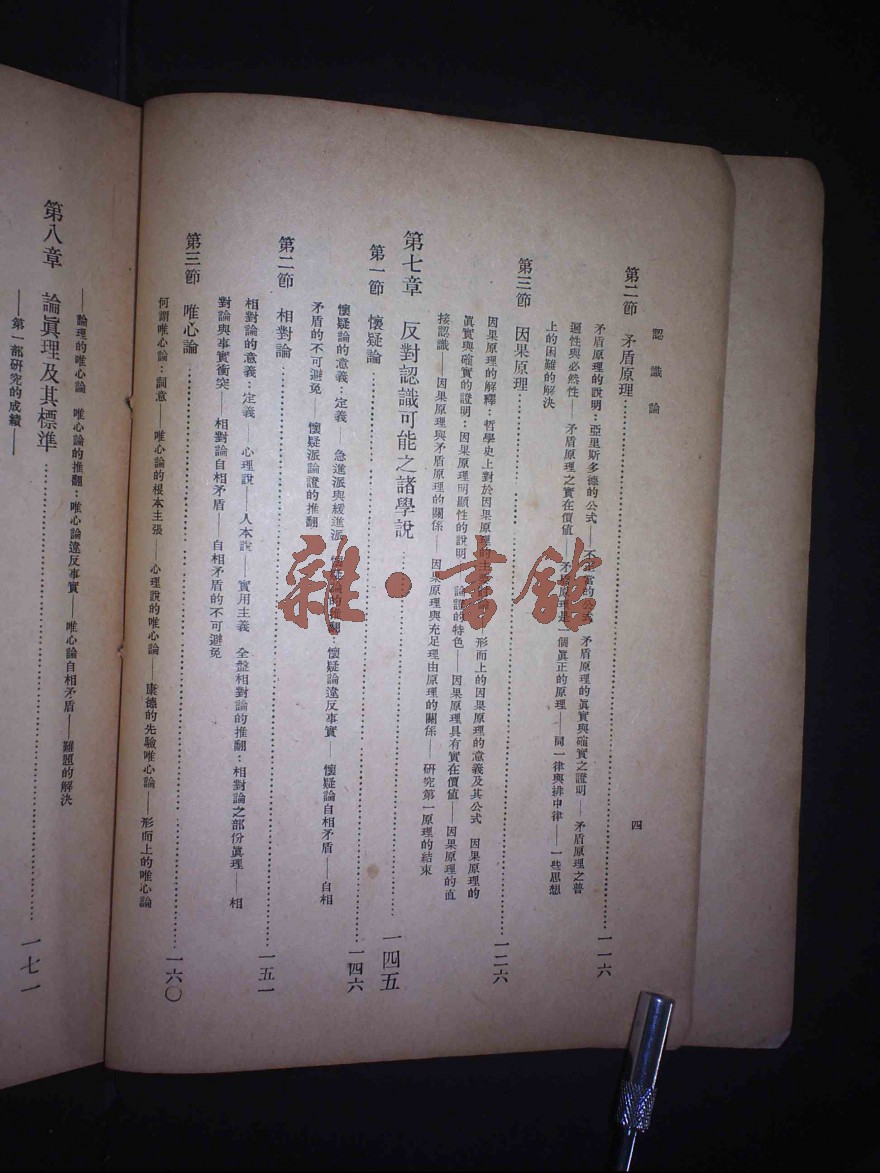 認識論
四
第二節 矛盾原理……一一六
矛盾原理的說明:亞里斯多德的公式——不正當的公式 矛盾原理的眞實與確實之證明——矛盾原理之普
遍性與必然性——矛盾原理之實在價値——矛盾原理是一個眞正的原理——同一律與排中律——一些思想
上的困難的解決
第三節 因果原理……一二六
因果原理的解釋:哲學史上對於因果原理的主要 形而上的因果原理的意義及其公式 因果原理的
眞實與確實的證明:因果原理明顯性的說明——論證的特色——因果原理具有實在價値——因果原理的直
接認識——因果原理與矛盾原理的關係——因果原理與充足理由原理的關係——研究第一原理的結束
第七章 反對認識可能之諸學說……一四五
第一節 懷疑論……一四六
懷疑論的意義:定義——急進派與緩進派 懷疑論的推翻:懷疑論違反事實——懷疑論自相矛盾——自相
矛盾的不可避免——懷疑派論證的推翻
第二節 相對論……一五一
相對論的意義:定義——心理說——人本說——實用主義 全盤相對論的推翻:相對論之部份眞理——相
對論與事實衝突——相對論自相矛盾 自相矛盾的不可避免
第三節 唯心論……一六〇
何謂唯心論:洞意——唯心論的根本主張——心理說的唯心論——康德的先驗唯心論——形而上的唯心論
——論理的唯心論 唯心論的推翻:唯心論違反事實——唯心論自相矛盾——難題的解決
第八章 論眞理及其標準……一七一
——第一部研究的成績——
雜·書館